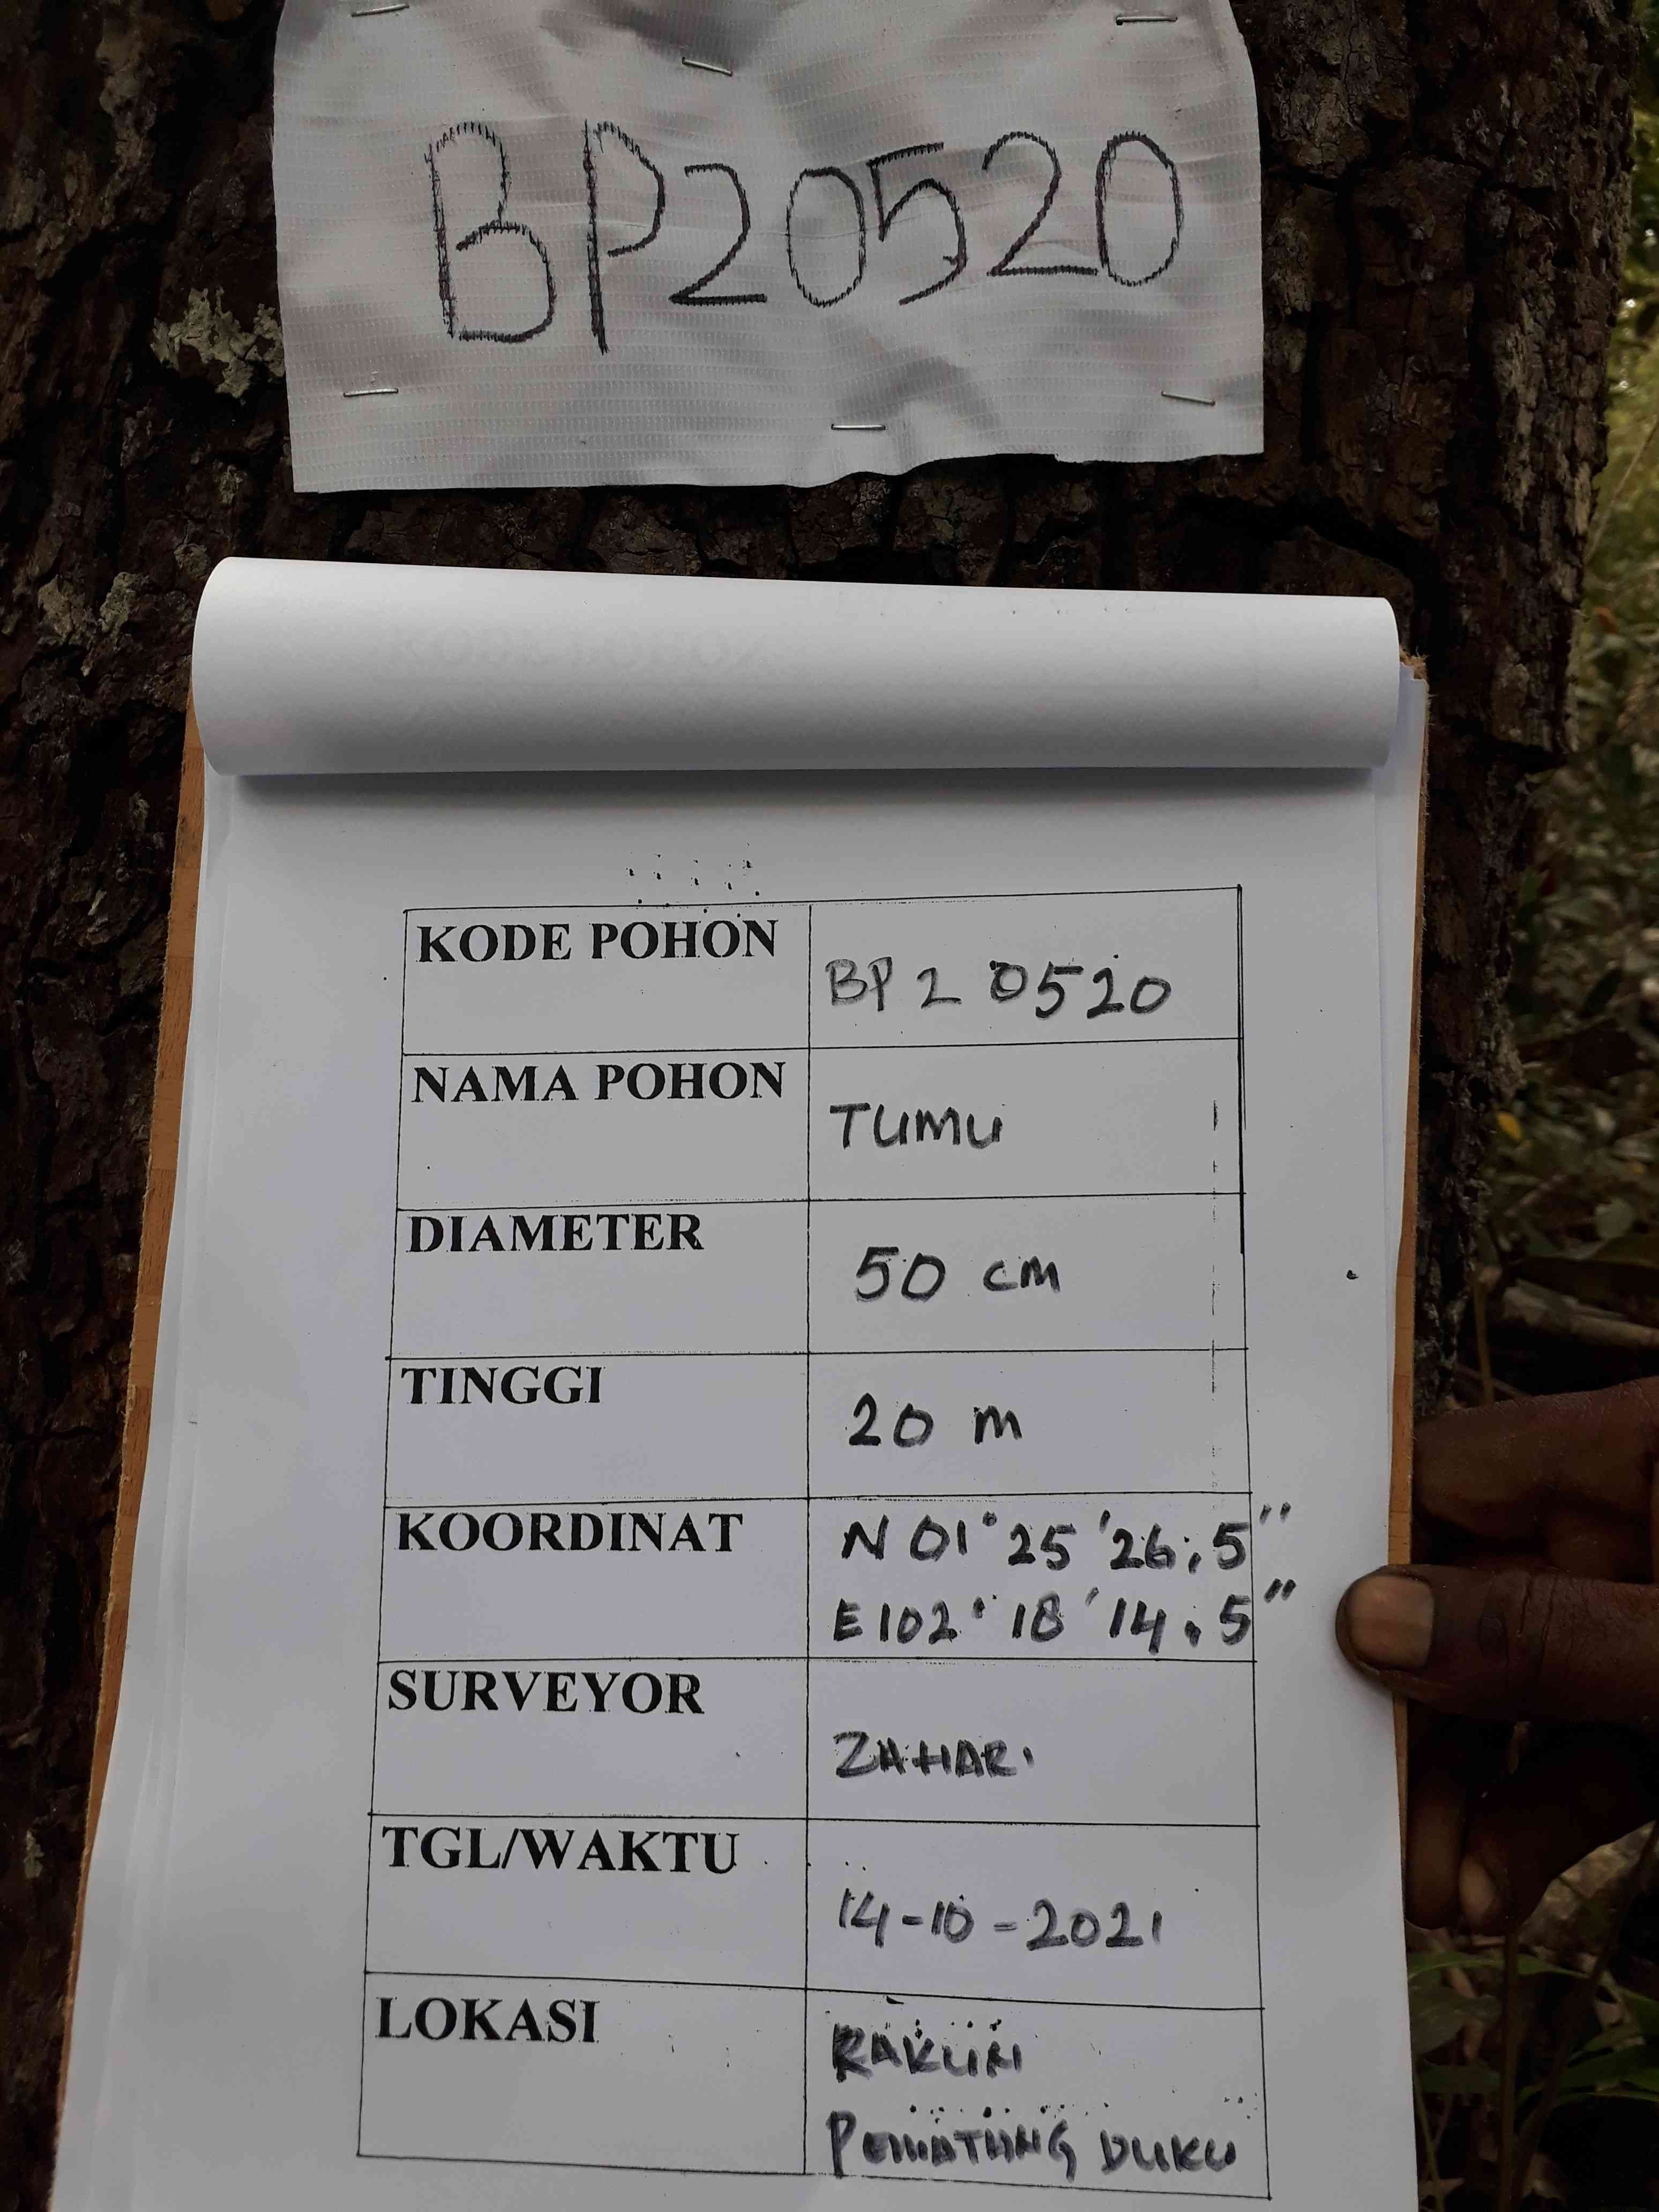 BP20520
KODE POHON
BP2 0520
NAMA POHON
TUMU
DIAMETER
50 cm
TINGGI
20 m
KOORDINAT
N 01° 25 '26,5"
E 102° 18 '14,5"
SURVEYOR
ZAHARI
TGL/WAKTU
14-10-2021
LOKASI
DUKU